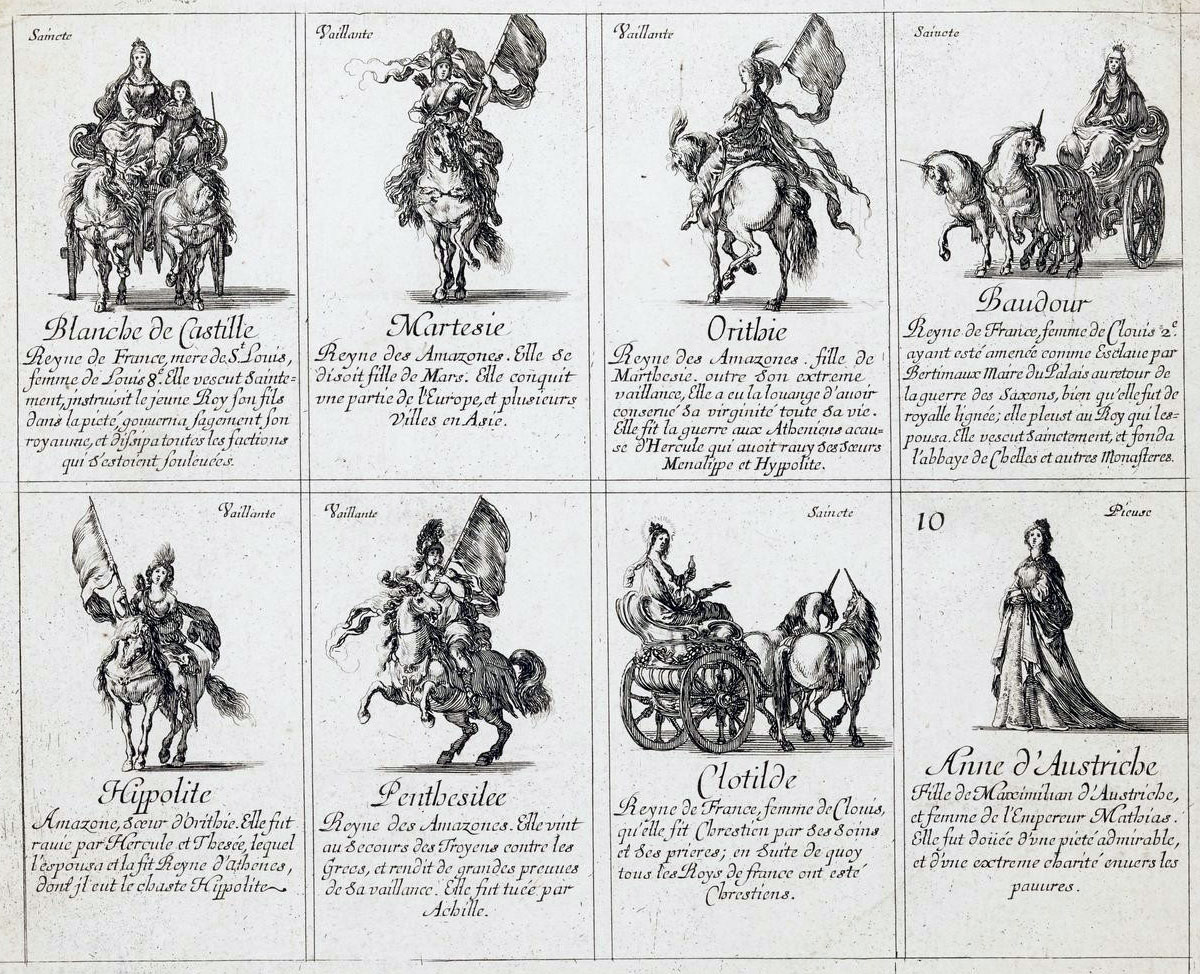 Saincte
Blanche de Castille
Reyne de France, mere de St. Louis,
femme de Louis 8e. Elle vescut sainte=
ment, instruisit le jeune Roy son fils
dans la pieté, gouverna sagement son
royaume, et dissipa toutes les factions
qui s'estoient souleuées.
Vaillante
Martesie
Reyne des Amazones. Elle se
disoit fille de Mars. Elle conquit
vne partie de l'Europe, et plusieurs
Villes en Asie.
Vaillante
Orithie
Reyne des Amazones. fille de
Marthesie. outre son extreme
vaillance, Elle a eu la louange d'auoir
conserué sa virginité toute sa vie.
Elle fit la guerre aux Atheniens acau=
se d'Hercule qui auoit rauy ses sœurs
Menalippe et Hyppolite.
Saincte
Baudour
Reyne de France, femme de Clouis 2e.
ayant esté amenée comme Esclaue par
Bertimaux Maire du Palais au retour de
la guerre des Saxons, bien qu'elle fut de
royalle lignée; elle pleust au Roy qui les=
pousa. Elle vescut sainctement, et fonda
l'abbaye de Chelles et autres Monasteres.
Vaillante
Hippolite
Amazone, sœur d'Orithie. Elle fut
rauie par Hercule et Thesée, lequel
l'espousa et la fit Reyne d'Athenes,
dont il eut le chaste Hippolite
Vaillante
Penthesilee
Reyne des Amazones. Elle vint
au secours des Troyens contre les
Grecs, et rendit de grandes preuues
de sa vaillance. Elle fut tuée par
Achille.
Saincte
Clotilde
Reyne de France, femme de Clouis,
qu'elle fit Chrestien par ses soins
et ses prieres; en suite de quoy
tous les Roys de france ont esté
Chrestiens.
10
Pieuse
Anne d'Austriche
Fille de Maximilian d'Austriche,
et femme de l'Empereur Mathias.
Elle fut doüée d'vne pieté admirable,
et d'vne extreme charité enuers les
pauures.